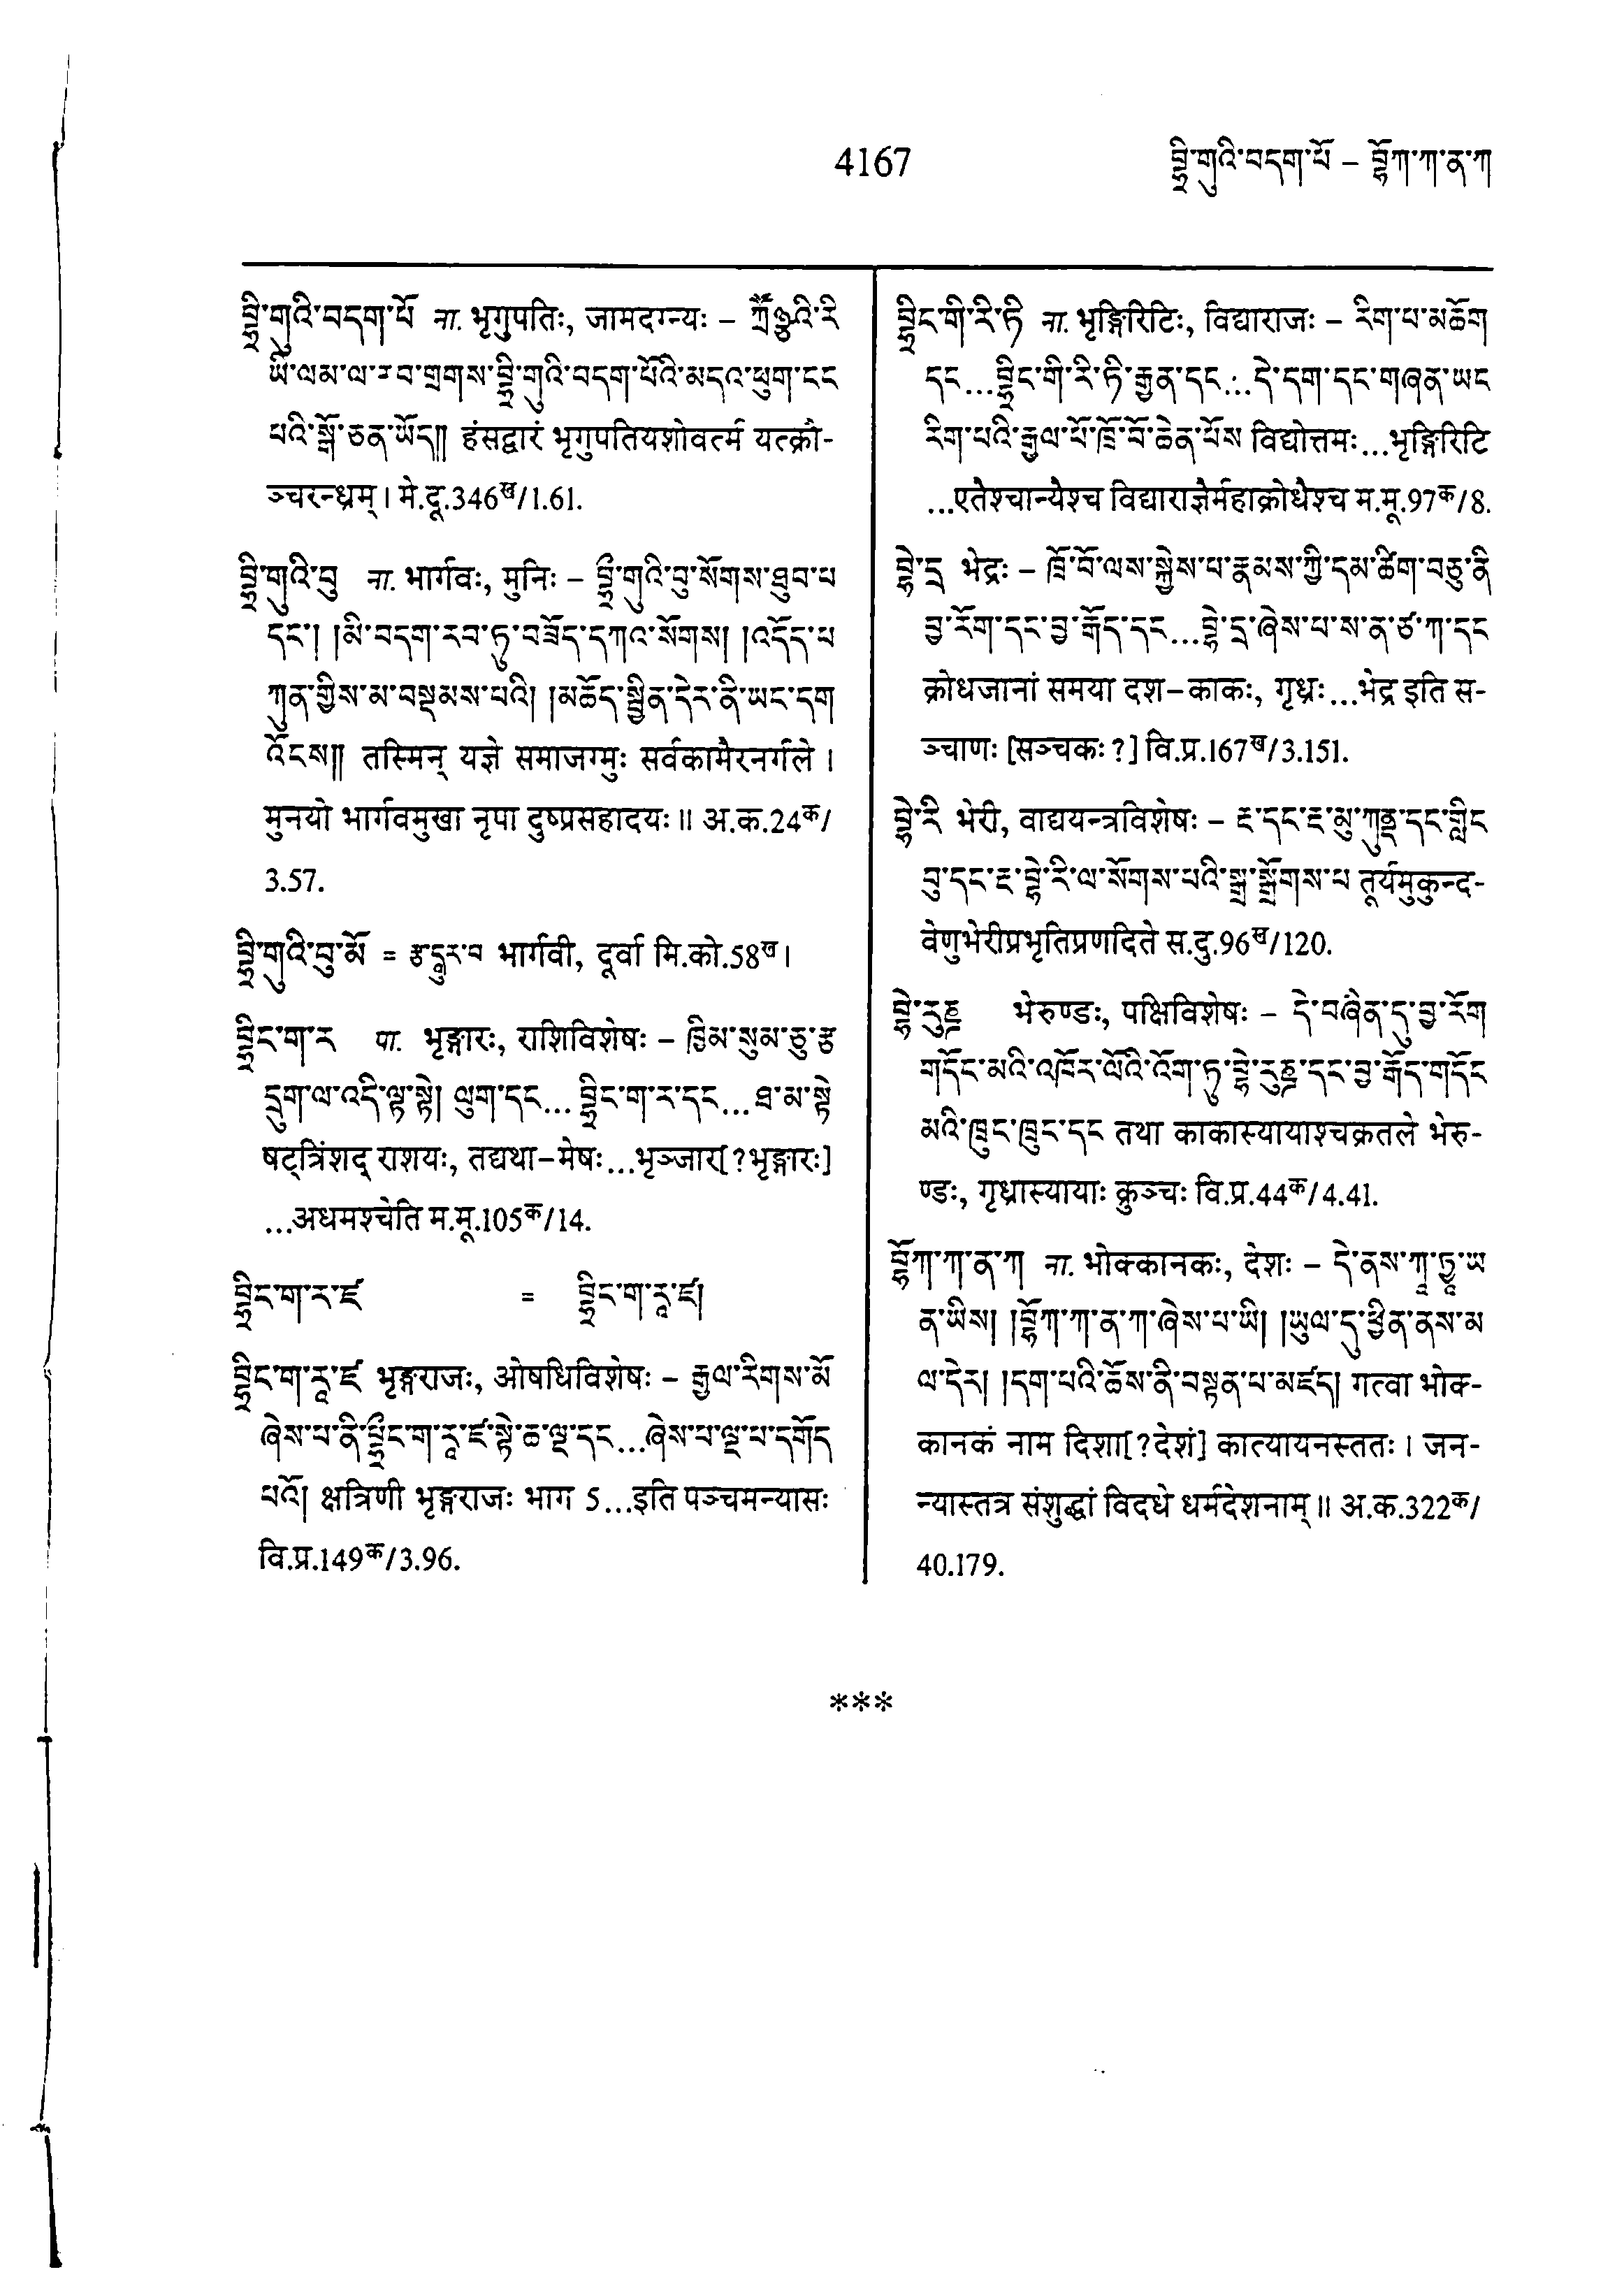 4167
བྷྲྀ་གུའི་བདག་པོ – བྷོཀ་ཀ་ན་ཀ
བྷྲྀ་གུའི་བདག་པོ ना. भृगुपतिः, जामदग्न्यः – ཀྲཽཉྩའི་རི
ཡི་ལམ་ལ་ ་བ་གྲགས་བྷྲྀ་གུའི་བདག་པོའི་མདའ་ཕུག་ངང
པའི་སྒོ་ཅན་ཡོད།། हंसद्वारं भृगुपतियशोवर्त्म यत्क्रौ-
ञ्चरन्ध्रम्। मे.दू.346ख/1.61.
བྷྲྀ་གུའི་བུ ना. भार्गवः, मुनिः – བྷྲྀ་གུའི་བུ་སོགས་ཐུབ་པ
དང་། །མི་བདག་རབ་ཏུ་བཟོད་དཀའ་སོགས། །འདོད་པ
ཀུན་གྱིས་མ་བསྡམས་པའི། །མཆོད་སྦྱིན་དེར་ནི་ཡང་དག
འོངས།། तस्मिन् यज्ञे समाजग्मुः सर्वकामैरनर्गले।
मुनयो भार्गवमुखा नृपा दुष्प्रसहादयः॥ अ.क.24क/
3.57.
བྷྲྀ་གུའི་བུ་མོ = རྩ་དཱུར་བ भार्गवी, दूर्वा मि.को.58ख।
བྷྲྀང་ག་ར पा. भृङ्गारः, राशिविशेषः – ཁྱིམ་སུམ་ཅུ་རྩ
དྲུག་ལ་འདི་ལྟ་སྟེ། ལུག་དང... བྷྲྀང་ག་ར་དང... ཐ་མ་སྟེ
षट्त्रिंशद् राशयः, तद्यथा–मेषः...भृञ्जार[?भृङ्गारः]
...अधमश्चेति म.मू.105क/14.
བྷྲྀང་ག་ར་ཛ = བྷྲྀང་ག་རཱ་ཛ།
བྷྲྀང་ག་རཱ་ཛ भृङ्गराजः, ओषधिविशेषः – རྒྱལ་རིགས་མོ
ཞེས་པ་ནི་བྷྲྀང་ག་རཱ་ཛ་སྟེ་ཆ་ལྔ་དང...ཞེས་པ་ལྔ་པ་དགོད
པའོ། क्षत्रिणी भृङ्गराजः भाग 5...इति पञ्चमन्यासः
वि.प्र.149क/3.96.
བྷྲྀང་གི་རི་ཏི ना. भृङ्गिरिटिः, विद्याराजः – རིག་པ་མཆོག
དང...བྷྲྀང་གི་རི་ཏི་རྒྱན་དང...དེ་དག་དང་གཞན་ཡང
རིག་པའི་རྒྱལ་པོ་ཁྲོ་བོ་ཆེན་པོས विद्योत्तमः...भृङ्गिरिटि
...एतैश्चान्यैश्च विद्याराज्ञैर्महाक्रोधैश्च म.मू.97क/8.
བྷེ་དྲ भेद्रः – ཁྲོ་བོ་ལས་སྐྱེས་པ་རྣམས་ཀྱི་དམ་ཚིག་བཅུ་ནི
བྱ་རོག་དང་བྱ་རྒོད་དང...བྷེ་དྲ་ཞེས་པ་ས་ན་ཙ་ཀ་དང
क्रोधजानां समया दश–काकः, गृध्रः...भेद्र इति स-
ञ्चाणः [सञ्चकः?] वि.प्र.167ख/3.151.
བྷེ་རི भेरी, वाद्ययन्त्रविशेषः – རྔ་དང་རྔ་མུ་ཀུནྡ་དང་གླིང
བུ་དང་རྔ་བྷེ་རི་ལ་སོགས་པའི་སྒྲ་སྒྲོགས་པ तूर्यमुकुन्द-
वेणुभेरीप्रभृतिप्रणदिते स.दु.96ख/120.
བྷེ་རུཎྜ भेरुण्डः, पक्षिविशेषः – དེ་བཞིན་དུ་བྱ་རོག
གདོང་མའི་འཁོར་ལོའི་འོག་ཏུ་བྷེ་རུཎྜ་དང་བྱ་རྒོད་གདོང
མའི་ཁྲུང་ཁྲུང་དང तथा काकास्यायाश्चक्रतले भेरु-
ण्डः, गृध्रास्यायाः क्रुञ्चः वि.प्र.44क/4.41.
བྷོཀ་ཀ་ན་ཀ ना. भोक्कानकः, देशः – དེ་ནས་ཀཱ་ཏྱཱ་ཡ
ན་ཡིས། །བྷོཀ་ཀ་ན་ཀ་ཞེས་པ་ཡི། །ཡུལ་དུ་ཕྱིན་ནས་མ
ལ་དེར། །དག་པའི་ཆོས་ནི་བསྟན་པ་མཛད། गत्वा भोक-
कानकं नाम दिशा[?देशं] कात्यायनस्ततः। जन-
न्यास्तत्र संशुद्धां विदधे धर्मदेशनाम्॥ अ.क.322क/
40.179.
***